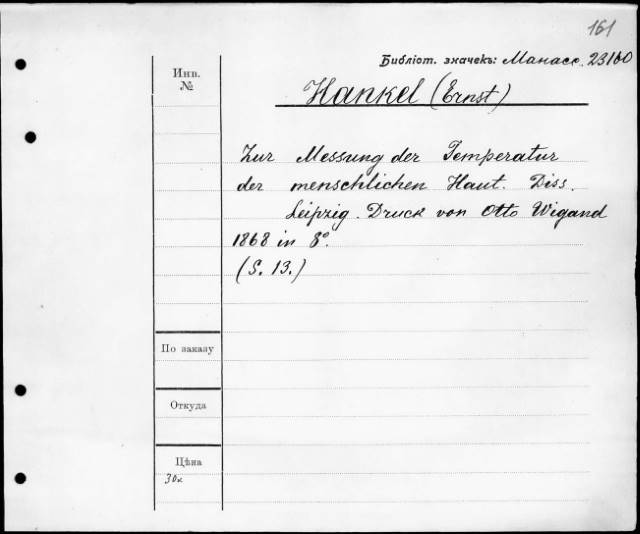 161
Библіот. значекъ: Манасс. 23100
Инв. №
Hankel (Ernst)
Zur Messung der Temperatur
der menschlichen Haut. Diss.
Leipzig. Druck von Otto Wigand
1868 in 8°.
(S. 13.)
По заказу
Откуда
Цѣна
30к